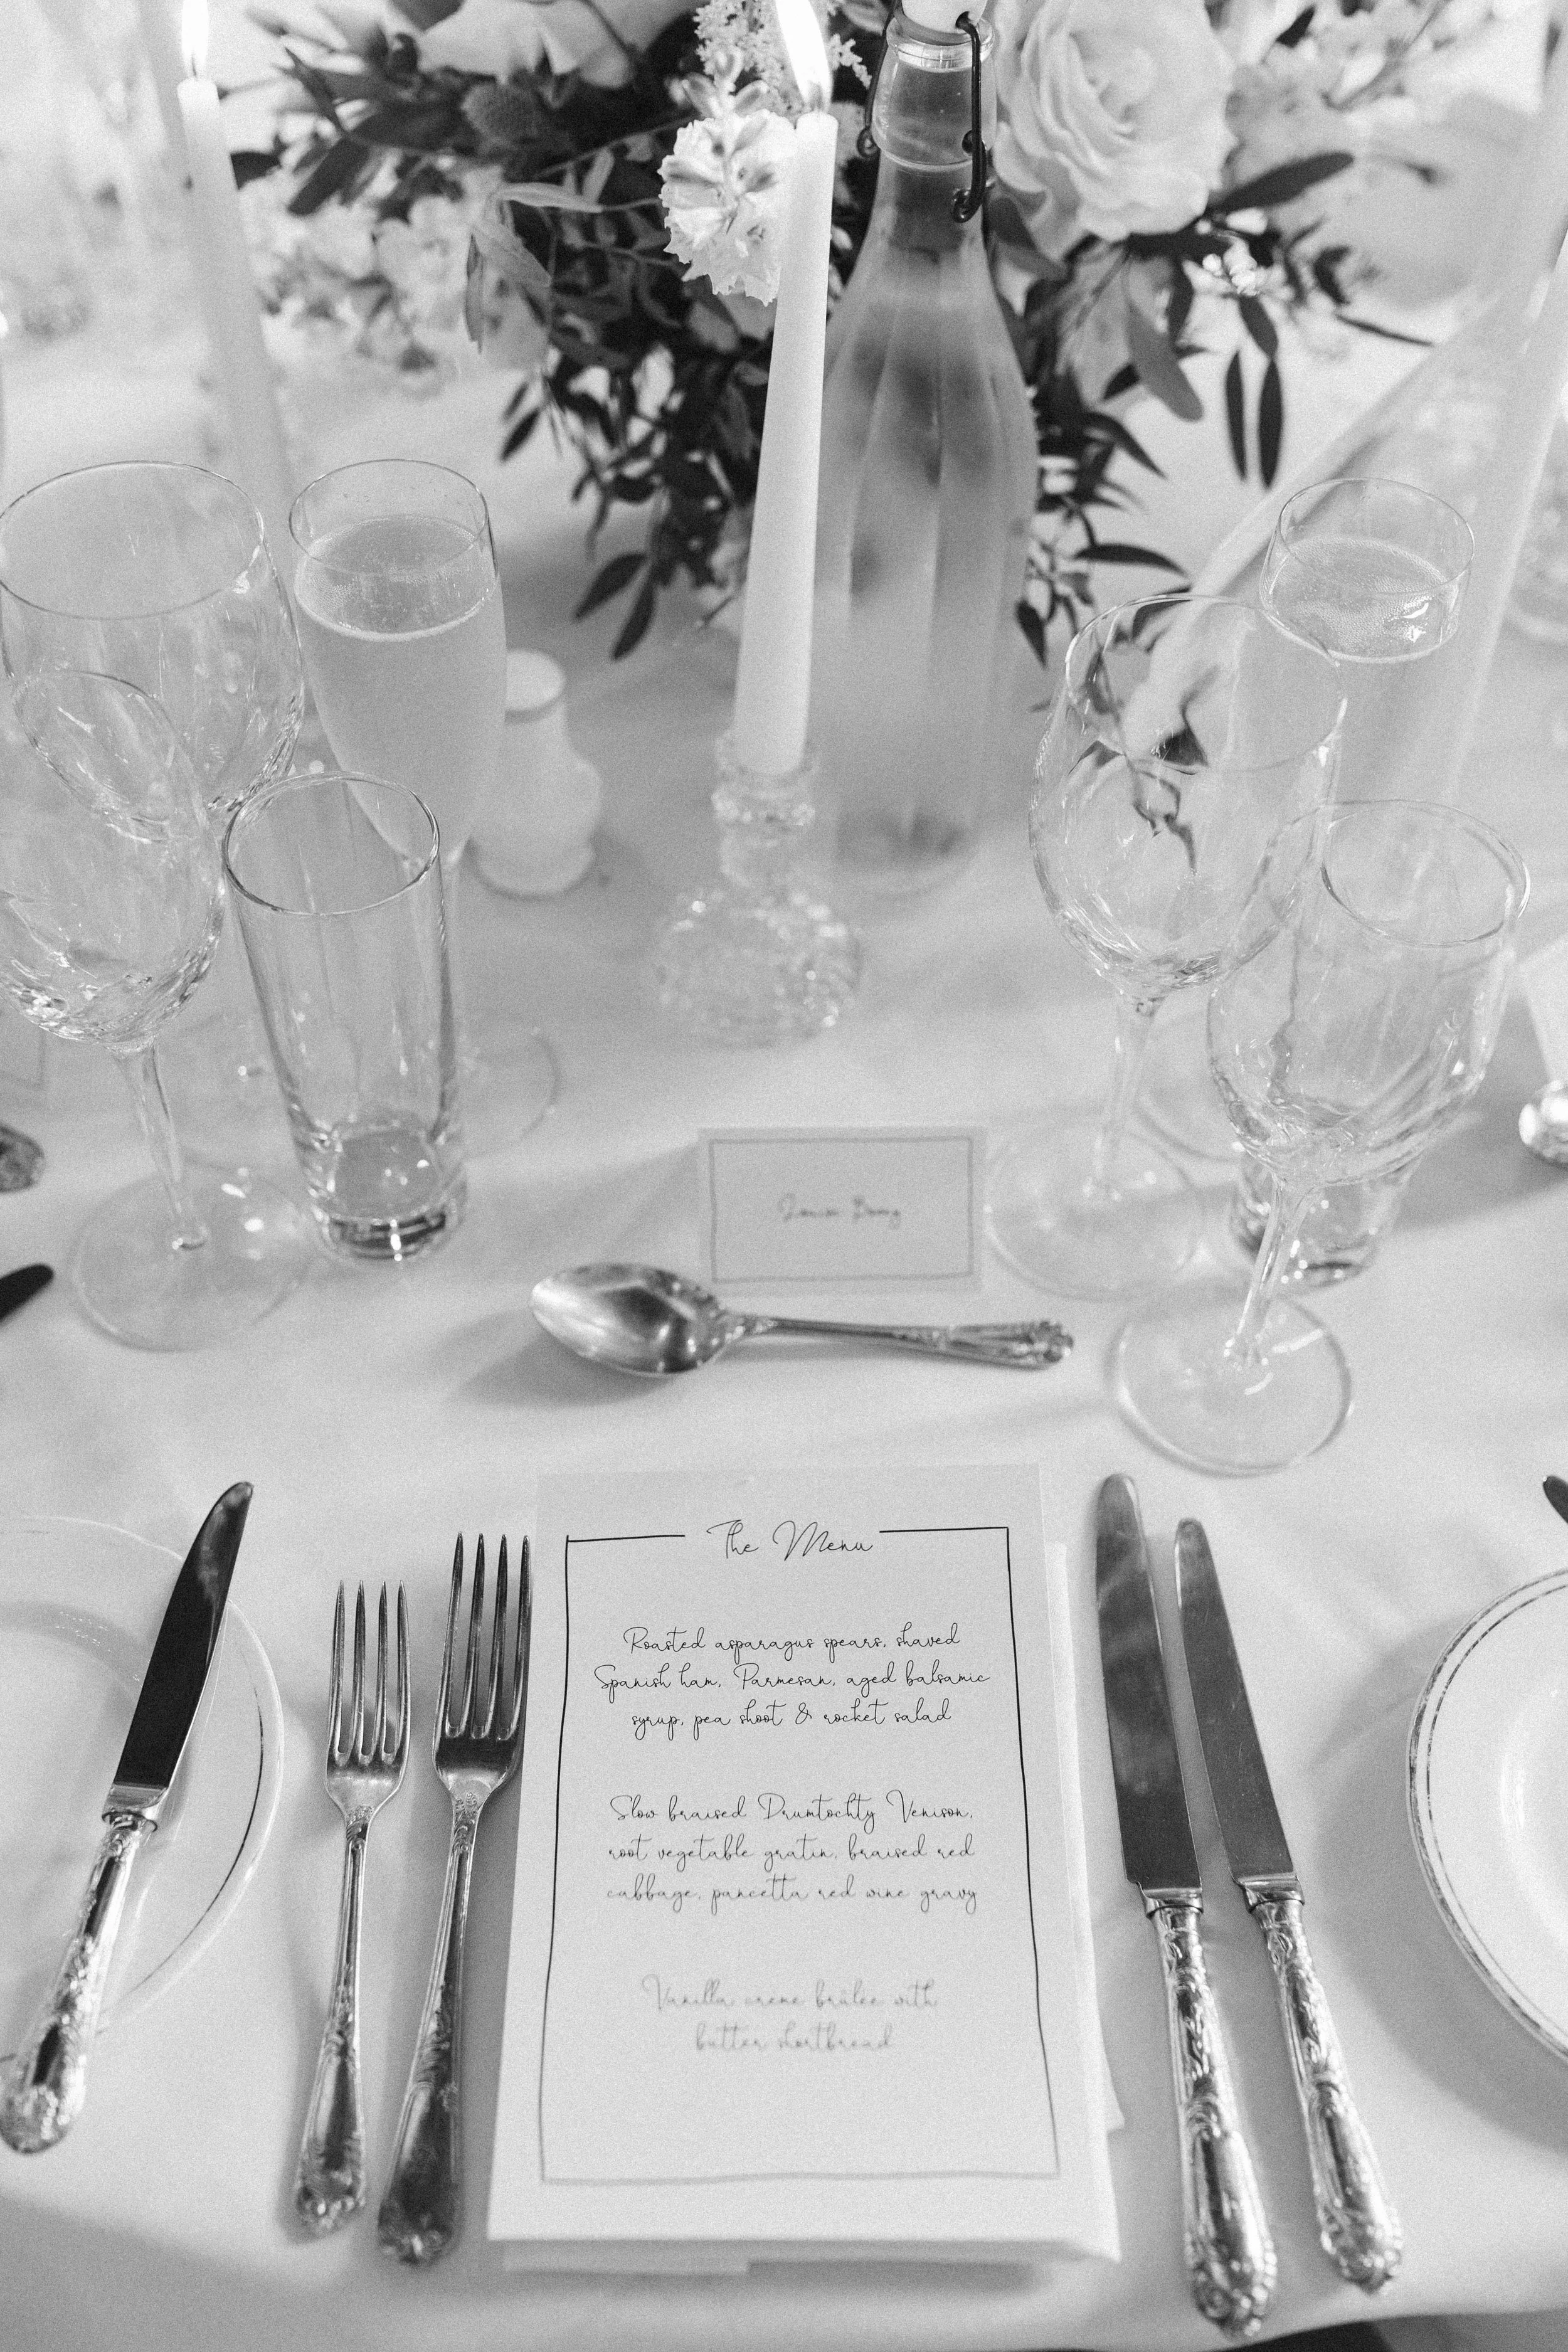 The Menu
Roasted asparagus spears, shaved
Spanish ham, Parmesan, aged balsamic
syrup, pea shoot & rocket salad
Slow braised Drumtochty Venison,
root vegetable gratin, braised red
cabbage, pancetta red wine gravy
Vanilla creme brûlée with
butter shortbread